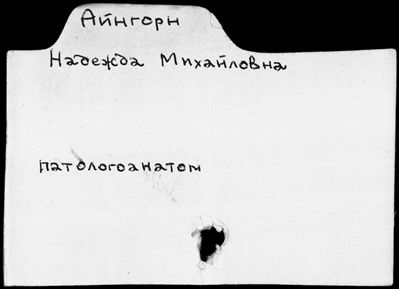 Айнгорн
Надежда Михайловна
патологоанатом